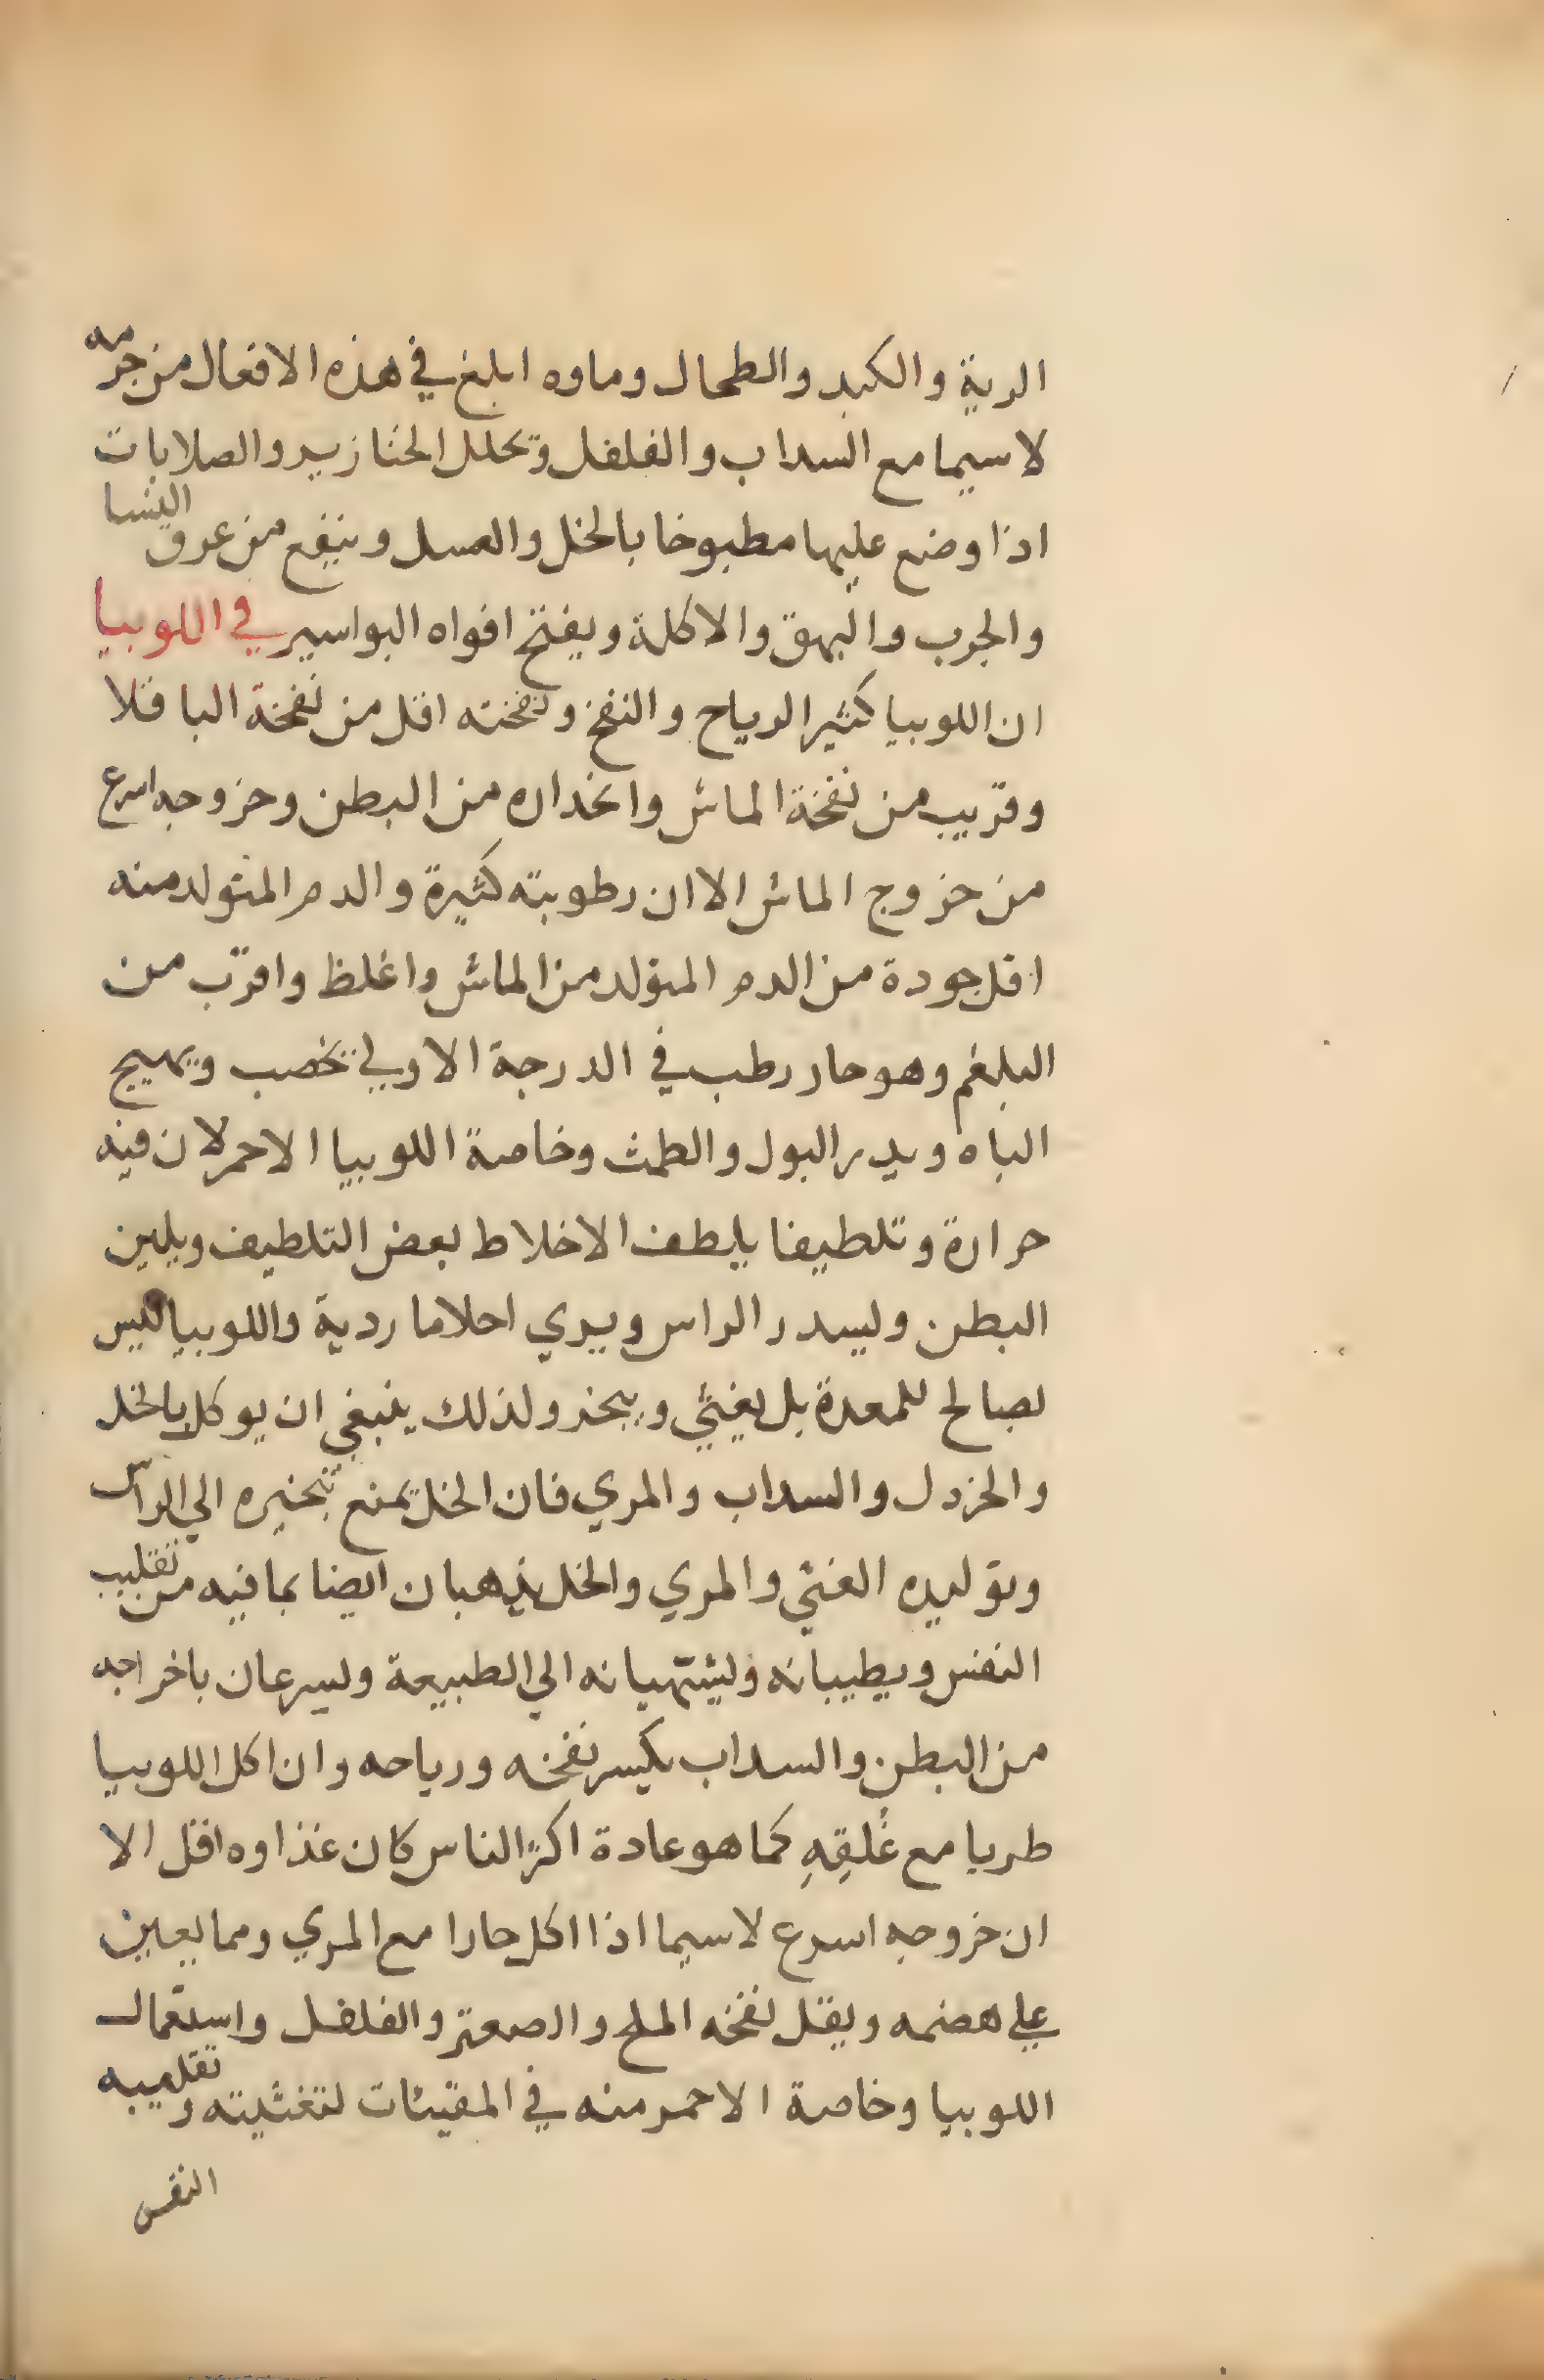 الرية والكبد والطحال وماوه ابلغ في هذه الافعال من جرمه
لاسيما مع السداب والفلفل وتحلل الخنازير والصلابات
اذا وضع عليها مطبوخا بالخل والعسل وينفع من عرق النسا
والجرب والبهق والاكلة ويفتح افواه البواسير في اللوبيا
ان اللوبيا كثير الرياح والنفخ ونفخته اقل من نفخة الباقلا
وقريب من نفخة الماش وانحداره من البطن وخروجه اسرع
من خروج الماش الا ان رطوبته كثيرة والدم المتولد منه
اقل جودة من الدم المتولد من الماش واغلظ واقرب من
البلغم وهو حار رطب في الدرجة الاولي تخصب ويهيج
الباه ويدر البول والطمث وخاصة اللوبيا الاحمر لان فيه
حرارة وتلطيفا يلطف الاخلاط بعض التلطيف ويلين
البطن ويسدر الراس ويري احلاما ردية واللوبيا ليس
بصالح للمعدة بل يغثي ويبخر ولذلك ينبغي ان يوكل بالخل
والخردل والسداب والمري فان الخل يمنع تبخيره الي الراس
وتوليده الغثي والمري والخل يذهبان ايضا بما فيه من تقليب
النفس ويطيبانه ويشتهيانه الي الطبيعة ويسرعان باخراجه
من البطن والسداب يكسر نفخه ورياحه وان اكل اللوبيا
طريا مع غُلقِهِ كما هو عادة اكثر الناس كان غذاوه اقل الا
ان خروجه اسرع لاسيما اذا اكل حارا مع المري ومما يعين
علي هضمه ويقل نفخه الملح والصعتر والفلفل واستعمال
اللوبيا وخاصة الاحمر منه في المقيئات لتغثيته وتقليبه
النفس